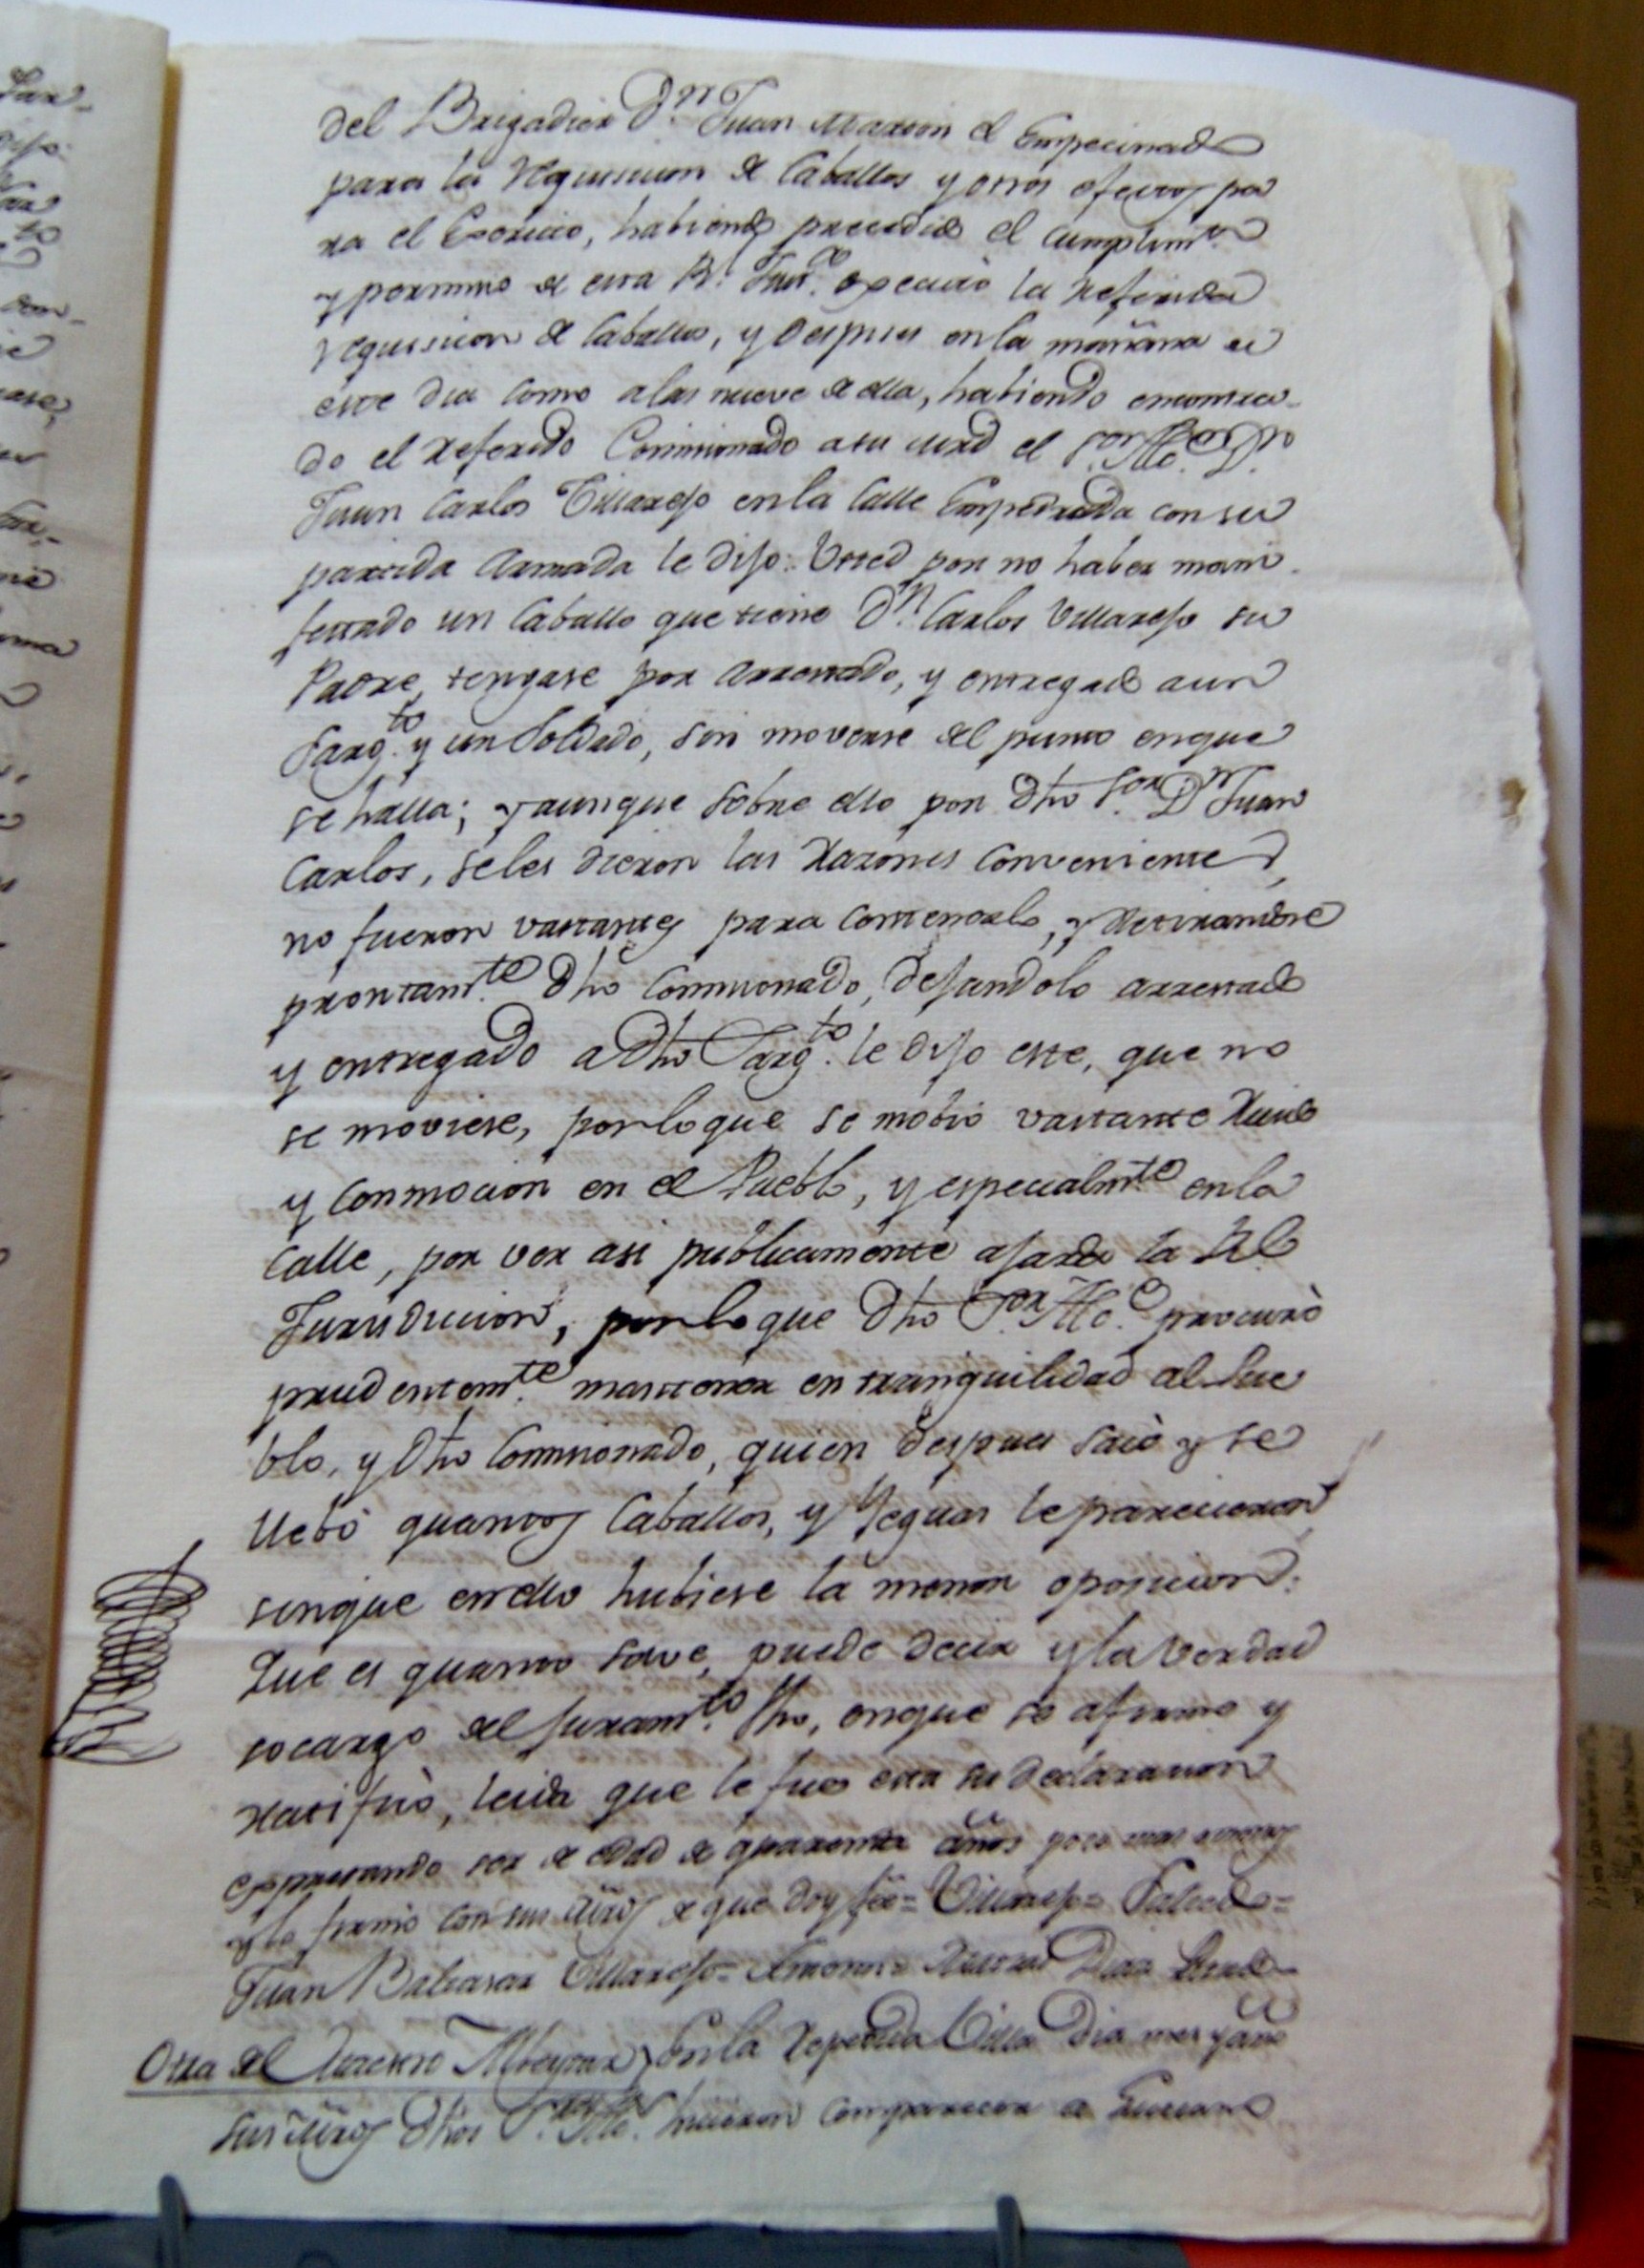 del Brigadier Dn. Juan Martin el Empecinado
para la Requisicion de Caballos y otros efectos pa
ra el Exercito, habiendo precedido el cumplimto.
y permiso de esta Rl. Jurn. executó la referida
requisicion de Caballos, y despues en la mañana de
este dia como a las nueve de ella, habiendo encontra-
do el referido Comisionado a su md el Sor. Alce. Dn.
Juan Carlos Villarejo en la Calle Empedrada con su
partida armada le dijo: Vsted por no haber mani-
festado un Caballo que tiene Dn. Carlos Villarejo su
Padre, tengase por arrestado, y entregado a un
Sargto. y un Soldado, sin moverse del punto en que
se halla; y aunque sobre ello por dho Sor. Dn Juan
Carlos, se les dieron las razones convenientes,
no fueron vastantes para contenerlo, y retirandose
prontamte. dho Comisionado, dejandolo arrestado
y entregado a dho Sargto. le dijo este, que no
se moviese, por lo que se mobió vastante Ruido
y conmocion en el Pueblo, y especialmte en la
Calle, por ver asi publicamente ajada la Rl
Jurisdicion, por lo que dho Sor. Alce. procuró
prudentemte. mantener en tranquilidad al Pue
blo, y dho Comisionado, quien despues sacó y se
llebó quantos Caballos, y Yeguas le parecieron
sin que en ello hubiese la menor oposicion.
Que es quanto save, puede decir y la verdad
so cargo del juramto. fho, en que se afirmó y
ratificó, leida que le fue esta su declaracion
expresando ser de edad de quarenta años poco mas o menos
y lo firmó con sus mrds de que doy fee = Villarejo = Salcedo =
Juan Baltasar Villarejo = Antemi =
Otra del Maestro Albeytar } En la repetida Villa dia mes y año
sus mrds dhos Sres. Alces. hicieron comparecer a